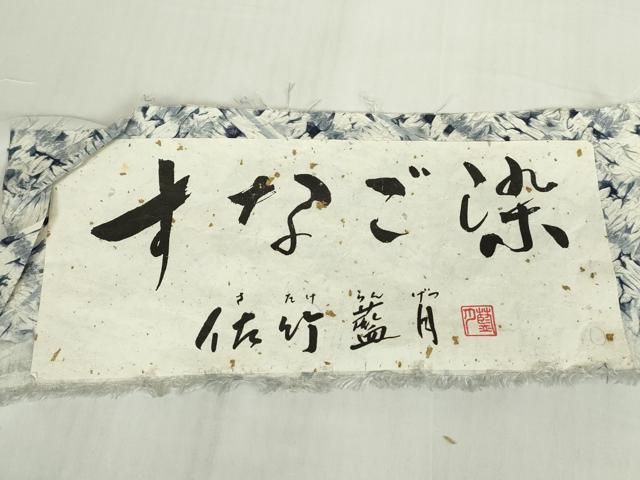 すなご染
さ たけ らん げつ
佐竹藍月
藍月